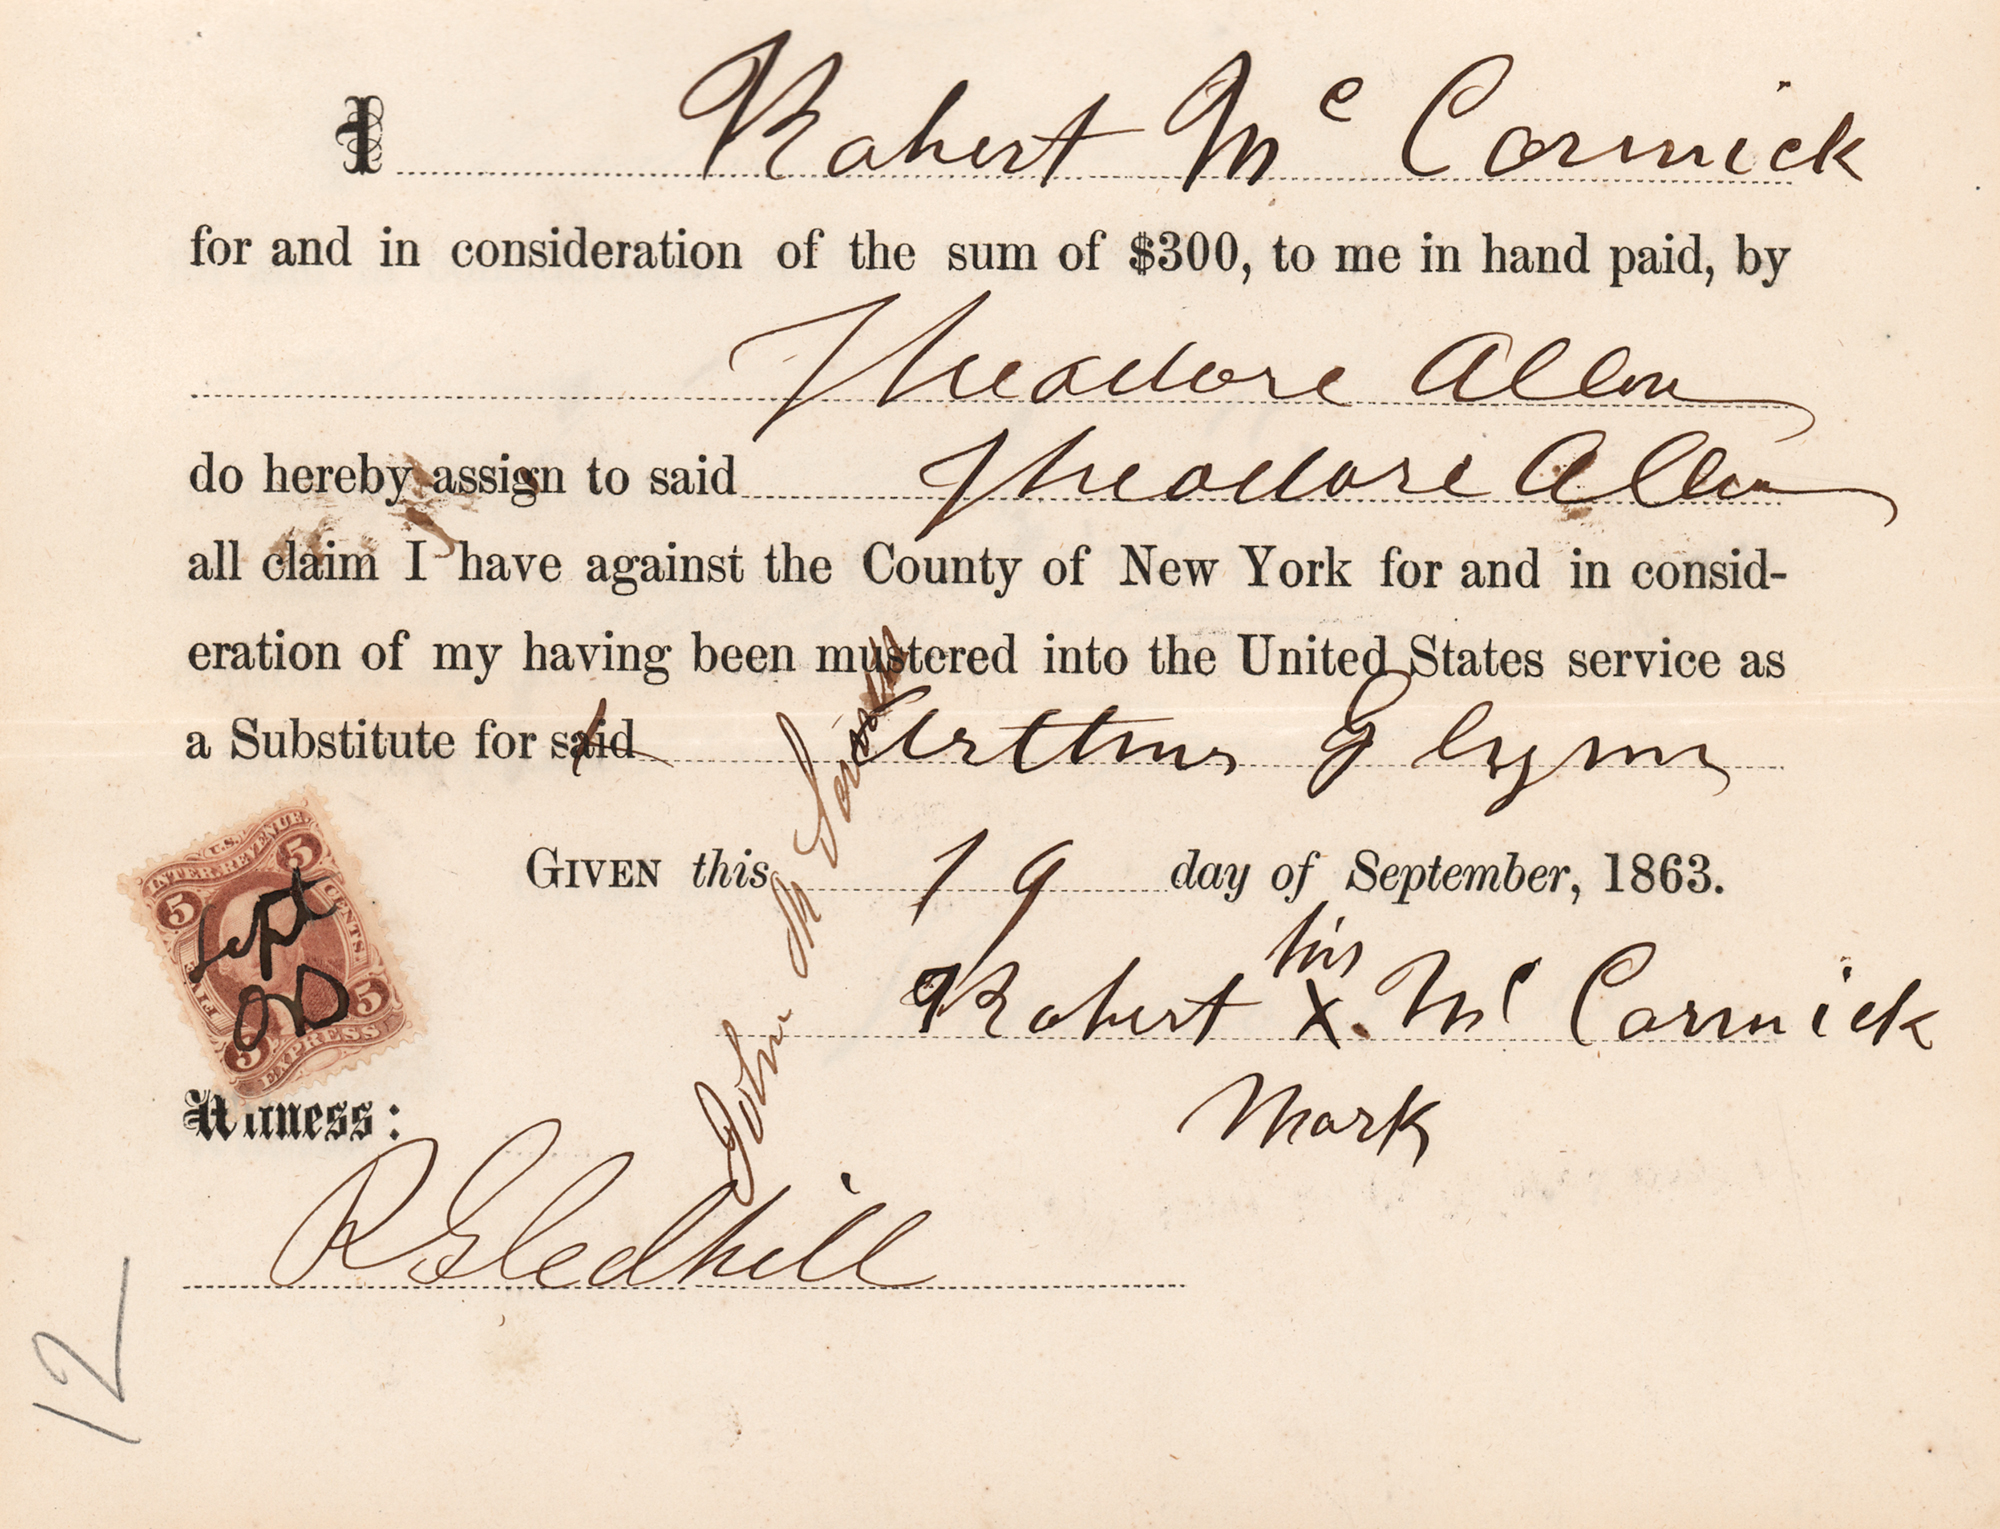 I Robert Mc Cormick
for and in consideration of the sum of $300, to me in hand paid, by
Theodore Allen
do hereby assign to said Theodore Allen
all claim I have against the County of New York for and in consid-
eration of my having been mustered into the United States service as
a Substitute for said Arthur Glynn
GIVEN this 19 day of September, 1863.
his
Robert X Mc Cormick
Mark
Witness:
R Gledhill
John
U.S.
INTER. REVENUE
5 5
FIVE CENTS
5 5
EXPRESS
Sept
12